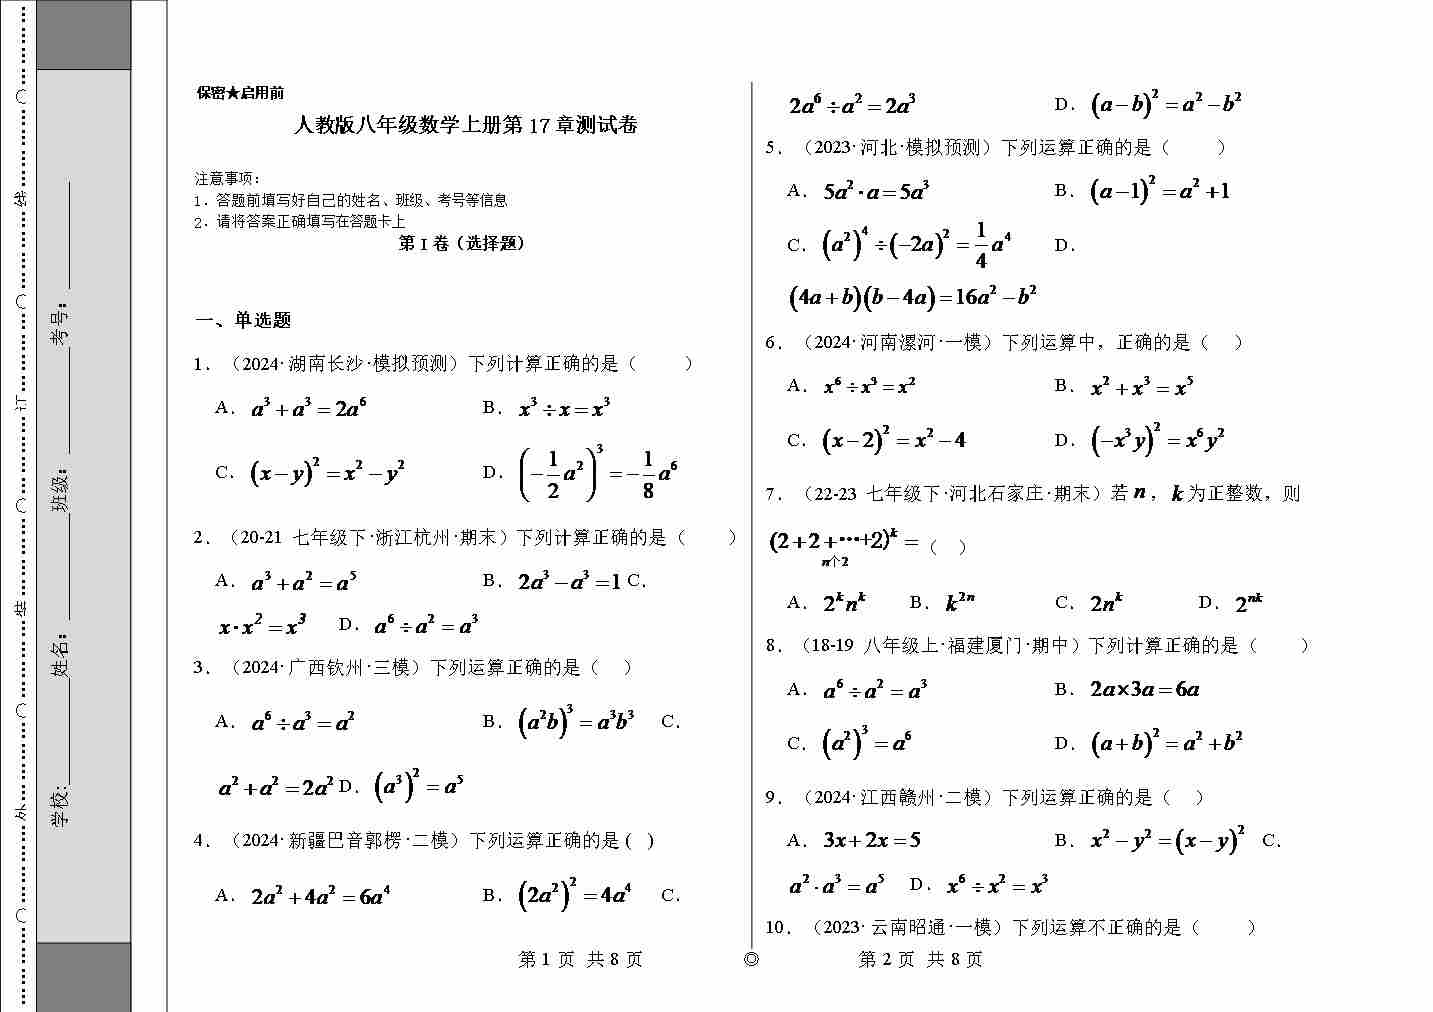 保密★启用前
人教版八年级数学上册第17章测试卷
注意事项：
1．答题前填写好自己的姓名、班级、考号等信息
2．请将答案正确填写在答题卡上
第I卷（选择题）
一、单选题
1．（2024·湖南长沙·模拟预测）下列计算正确的是（　　）
A．a³＋a³＝2a⁶ B．x³÷x＝x³
C．(x－y)²＝x²－y² D．(－1/2 a²)³＝－1/8 a⁶
2．（20-21 七年级下·浙江杭州·期末）下列计算正确的是（　　）
A．a³＋a²＝a⁵ B．2a³－a³＝1 C．
x·x²＝x³ D．a⁶÷a²＝a³
3．（2024·广西钦州·三模）下列运算正确的是（　）
A．a⁶÷a³＝a² B．(a²b)³＝a³b³ C．
a²＋a²＝2a² D．(a³)²＝a⁵
4．（2024·新疆巴音郭楞·二模）下列运算正确的是 (　)
A．2a²＋4a²＝6a⁴ B．(2a²)²＝4a⁴ C．
第1页 共8页
2a⁶÷a²＝2a³ D．(a－b)²＝a²－b²
5．（2023·河北·模拟预测）下列运算正确的是（　　）
A．5a²·a＝5a³ B．(a－1)²＝a²＋1
C．(a²)⁴÷(－2a)²＝1/4 a⁴ D．
(4a＋b)(b－4a)＝16a²－b²
6．（2024·河南漯河·一模）下列运算中，正确的是（　）
A．x⁶÷x³＝x² B．x²＋x³＝x⁵
C．(x－2)²＝x²－4 D．(－x³y)²＝x⁶y²
7．（22-23 七年级下·河北石家庄·期末）若n，k为正整数，则
(2＋2＋⋯＋2)ᵏ＝（　）
n个2
A．2ᵏnᵏ B．k²ⁿ C．2nᵏ D．2ⁿᵏ
8．（18-19 八年级上·福建厦门·期中）下列计算正确的是（　　）
A．a⁶÷a²＝a³ B．2a×3a＝6a
C．(a²)³＝a⁶ D．(a＋b)²＝a²＋b²
9．（2024·江西赣州·二模）下列运算正确的是（　）
A．3x＋2x＝5 B．x²－y²＝(x－y)² C．
a²·a³＝a⁵ D．x⁶÷x²＝x³
10．（2023·云南昭通·一模）下列运算不正确的是（　　）
◎ 第2页 共8页
学校:＿＿＿＿姓名：＿＿＿＿班级：＿＿＿＿考号：＿＿＿＿
外 装 订 线